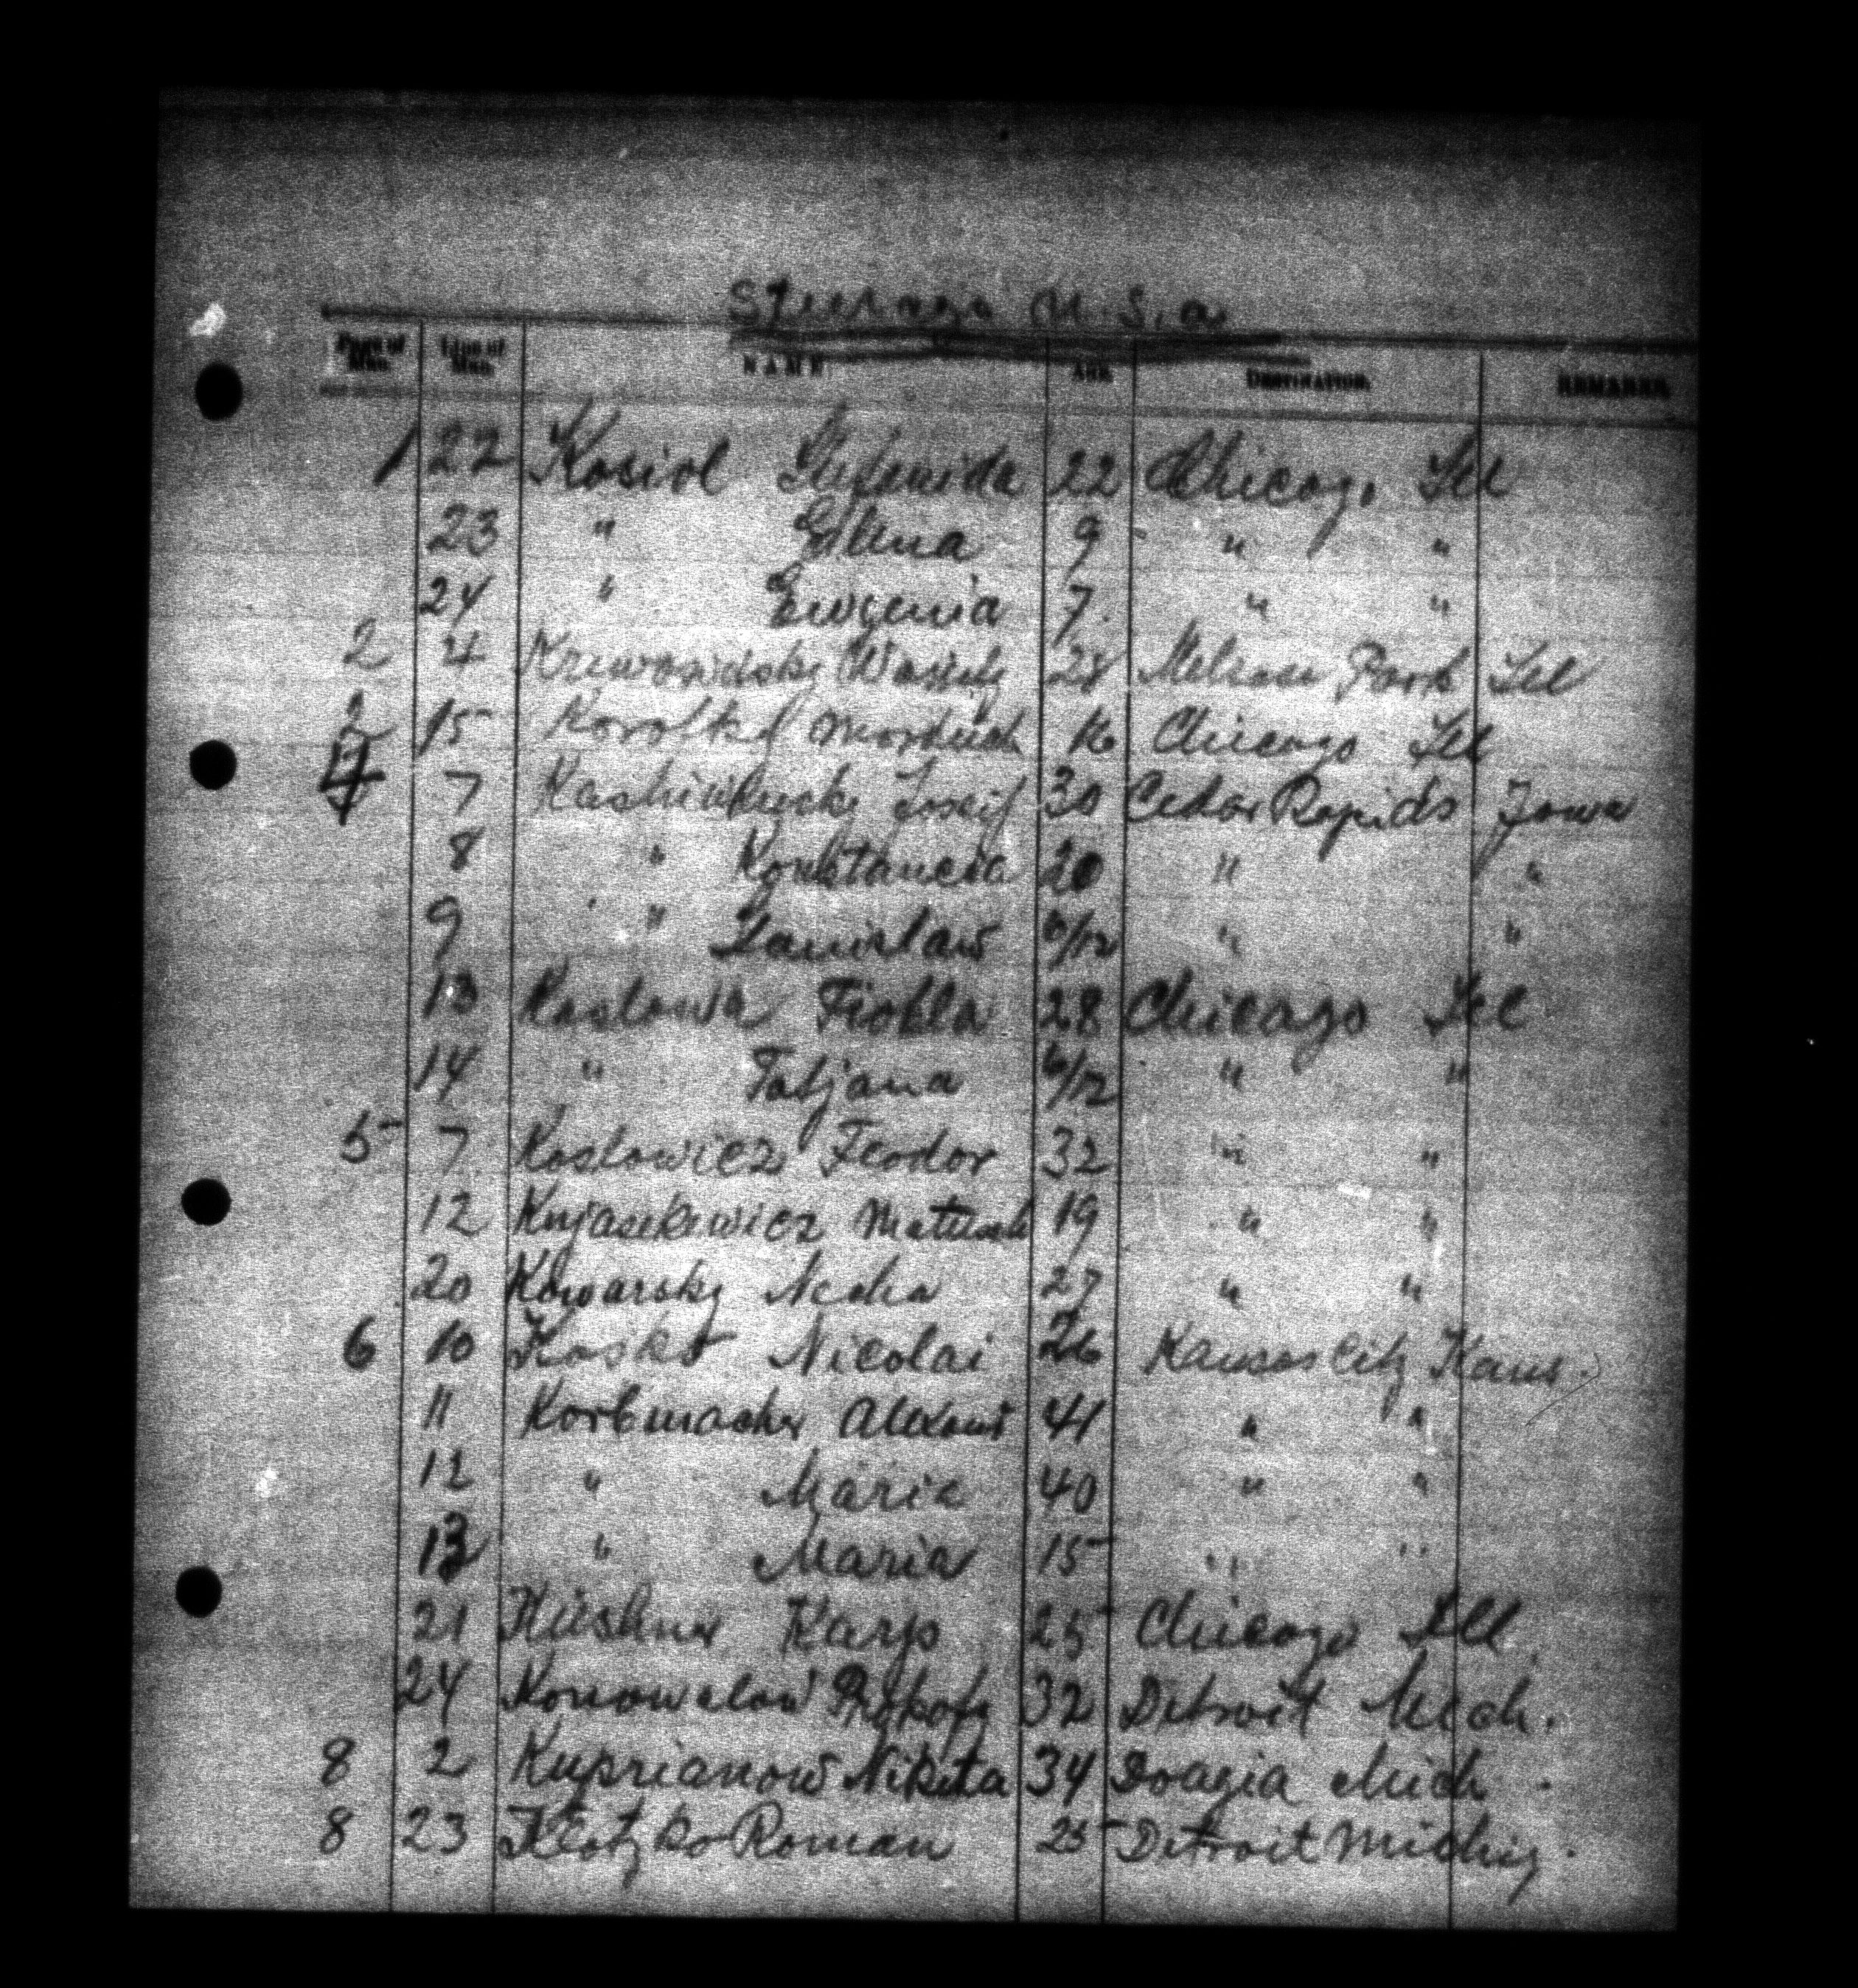 Steerage U.S.a
Page of Man. Line of Man. NAME AGE. DESTINATION. REMARKS.
1 22 Kosiol 22 Chicago Ill
23 " Elena 9 " "
24 " Ewgenia 7 " "
2 4 Wasily 28 Melrose Park Ill
2 15 Korotky Morduch 16 Chicago Ill
4 7 Joseif 30 Cedar Rapids Iowa
8 " Konstancia 20 " "
9 " Stanislaw 6/12 " "
13 Koslowa Fiokla 28 Chicago Ill
14 " Tatjana 6/12 " "
5 7 Koslowicz Feodor 32 " "
12 19 " "
20 Kowarsky Necha 27 " "
6 10 Kosko Nicolai 26 Kansas City Kans.
11 Korbmacher 41 " "
12 " Marie 40 " "
13 " Maria 15 " "
21 Kushner Karp 25 Chicago Ill
24 Konowalow Prokofy 32 Detroit Mich.
8 2 Kuprianow Nikita 34 Mich.
8 23 Klotzko Roman 25 Detroit Michig.